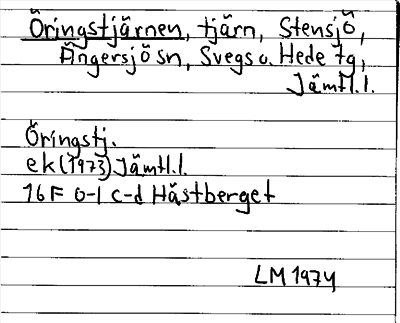 Öringstjärnen, tjärn, Stensjö,
Ängersjö sn, Svegs o. Hede tg,
Jämtl.l.
Öringstj.
ek (1973) Jämtl.l.
16F 0-1 c-d Hästberget
LM 1974